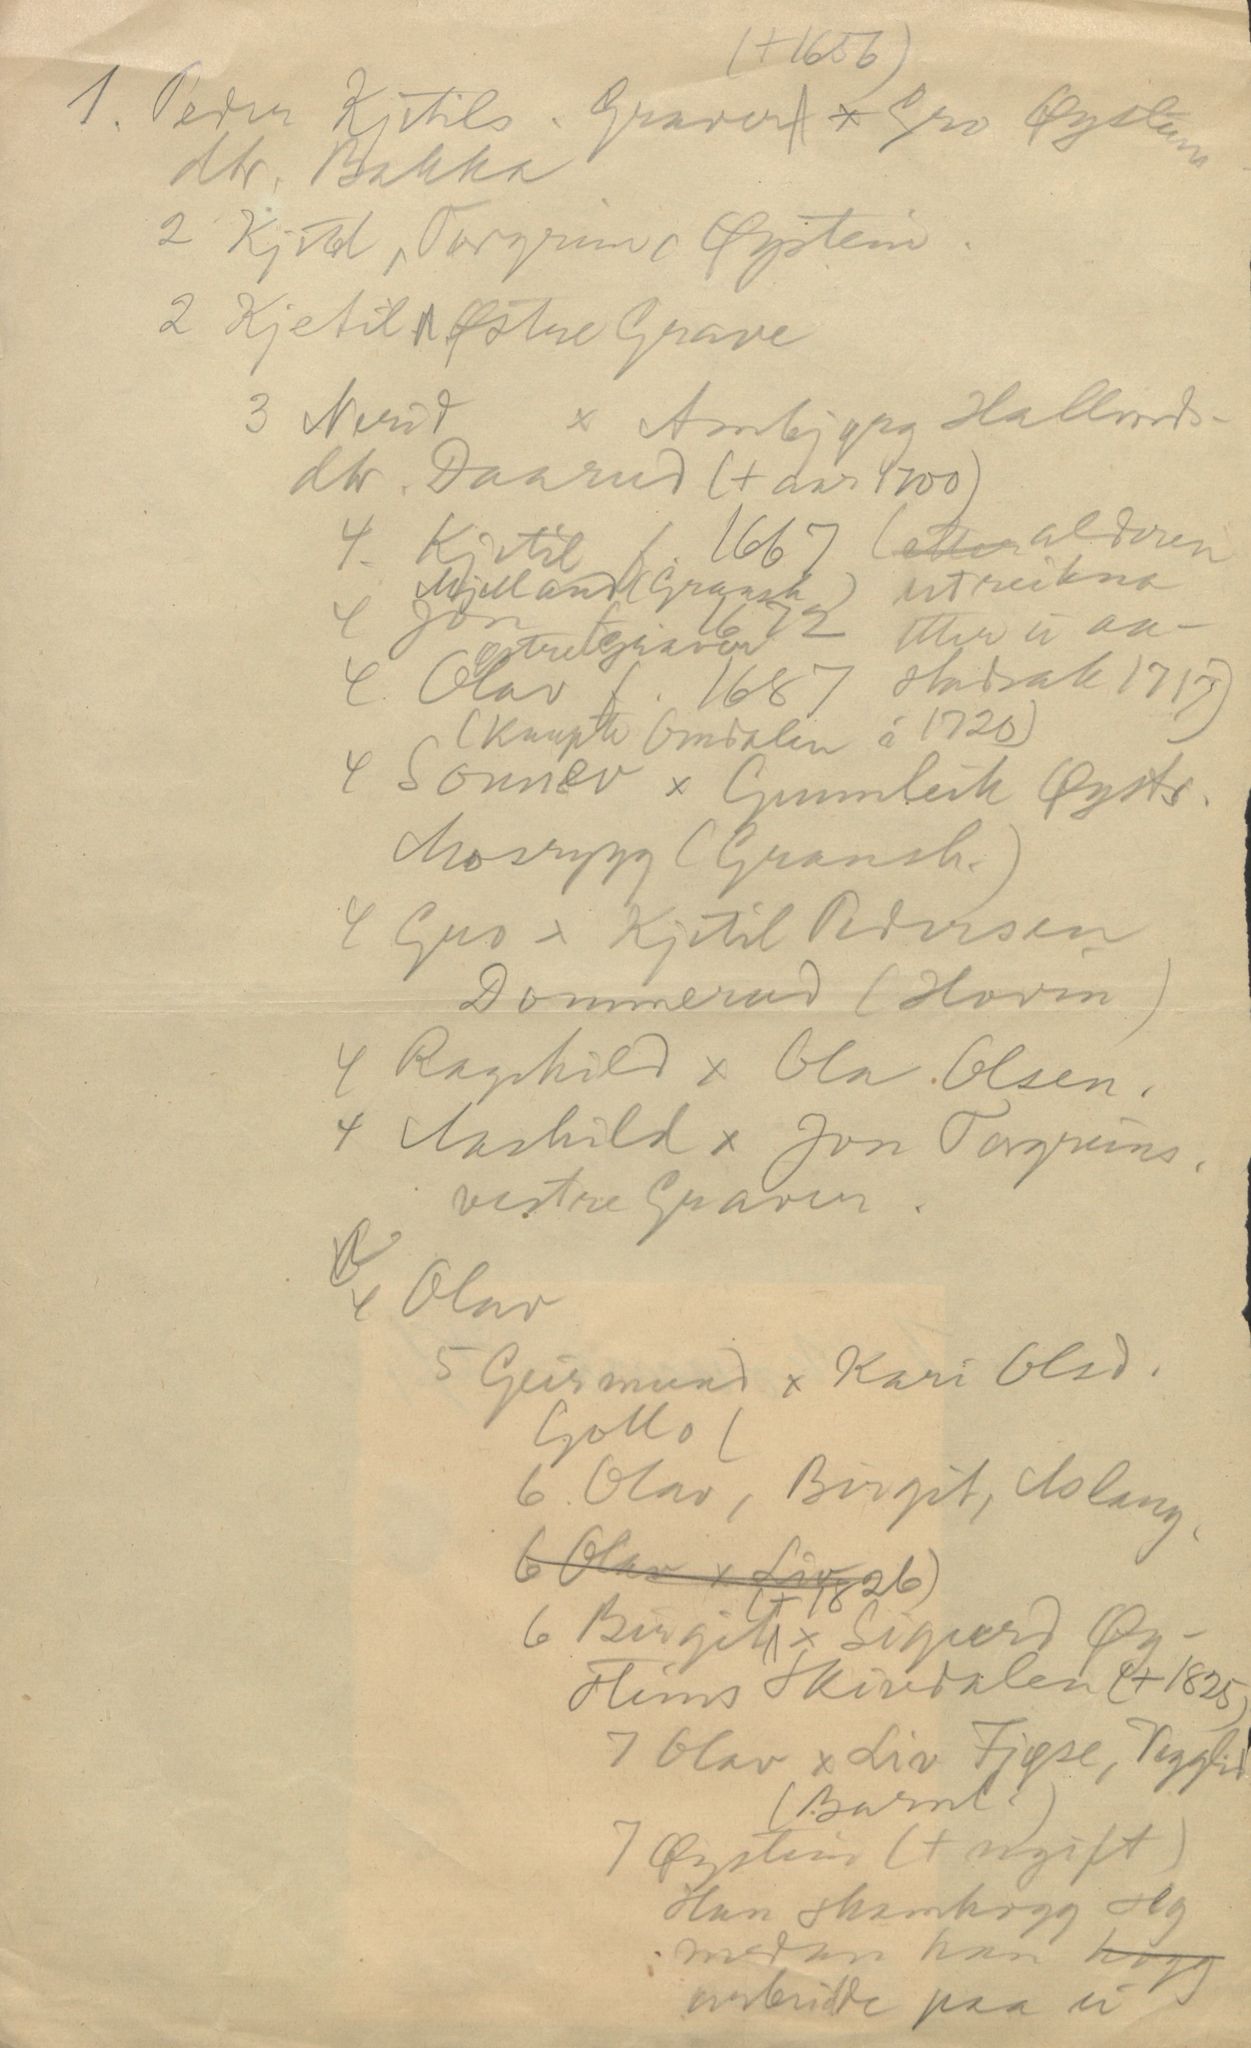 (+1656)
1. Peder Kjetils. Graver x Gro Øysteins
dtr. Bakka
2 Kjetil, Torgrim, Øystein.
2 Kjetil Østre Grave
3 Nerid x Ambjørg Hallvords-
dtr. Daarud (+ aar 1700)
4. Kjetil f. 1667 (etter alderen
Mjelland (Gransh.) utreikna
4 Jon f. 1672 etter ei aa-
østre Graver
4. Olav f. 1687 stadsak 1717)
(Kaupte Omdalen i 1720)
4 Sonnev x Gunnleik Øysts.
Mosrygg (Gransh.)
4 Gro x Kjetil Pedersen
Dommerud (Hovin)
4 Ragnhild x Ola Olsen.
4 Aashild x Jon Torgrims.
vestre Graver.
4 Olav
5 Geirmund x Kari Olsd.
Gollo (
6. Olav, Birgit, Aslaug.
6 Olav x Liv
(+ 1826)
6 Birgit x Sigurd Øy-
steins Skirvdalen (+ 1825)
7 Olav x Liv Fjøse, Vegglid
(Barnl.)
7 Øystein (+ ugift)
Han skamhogg seg
medan han hogg
arbeidde paa ei